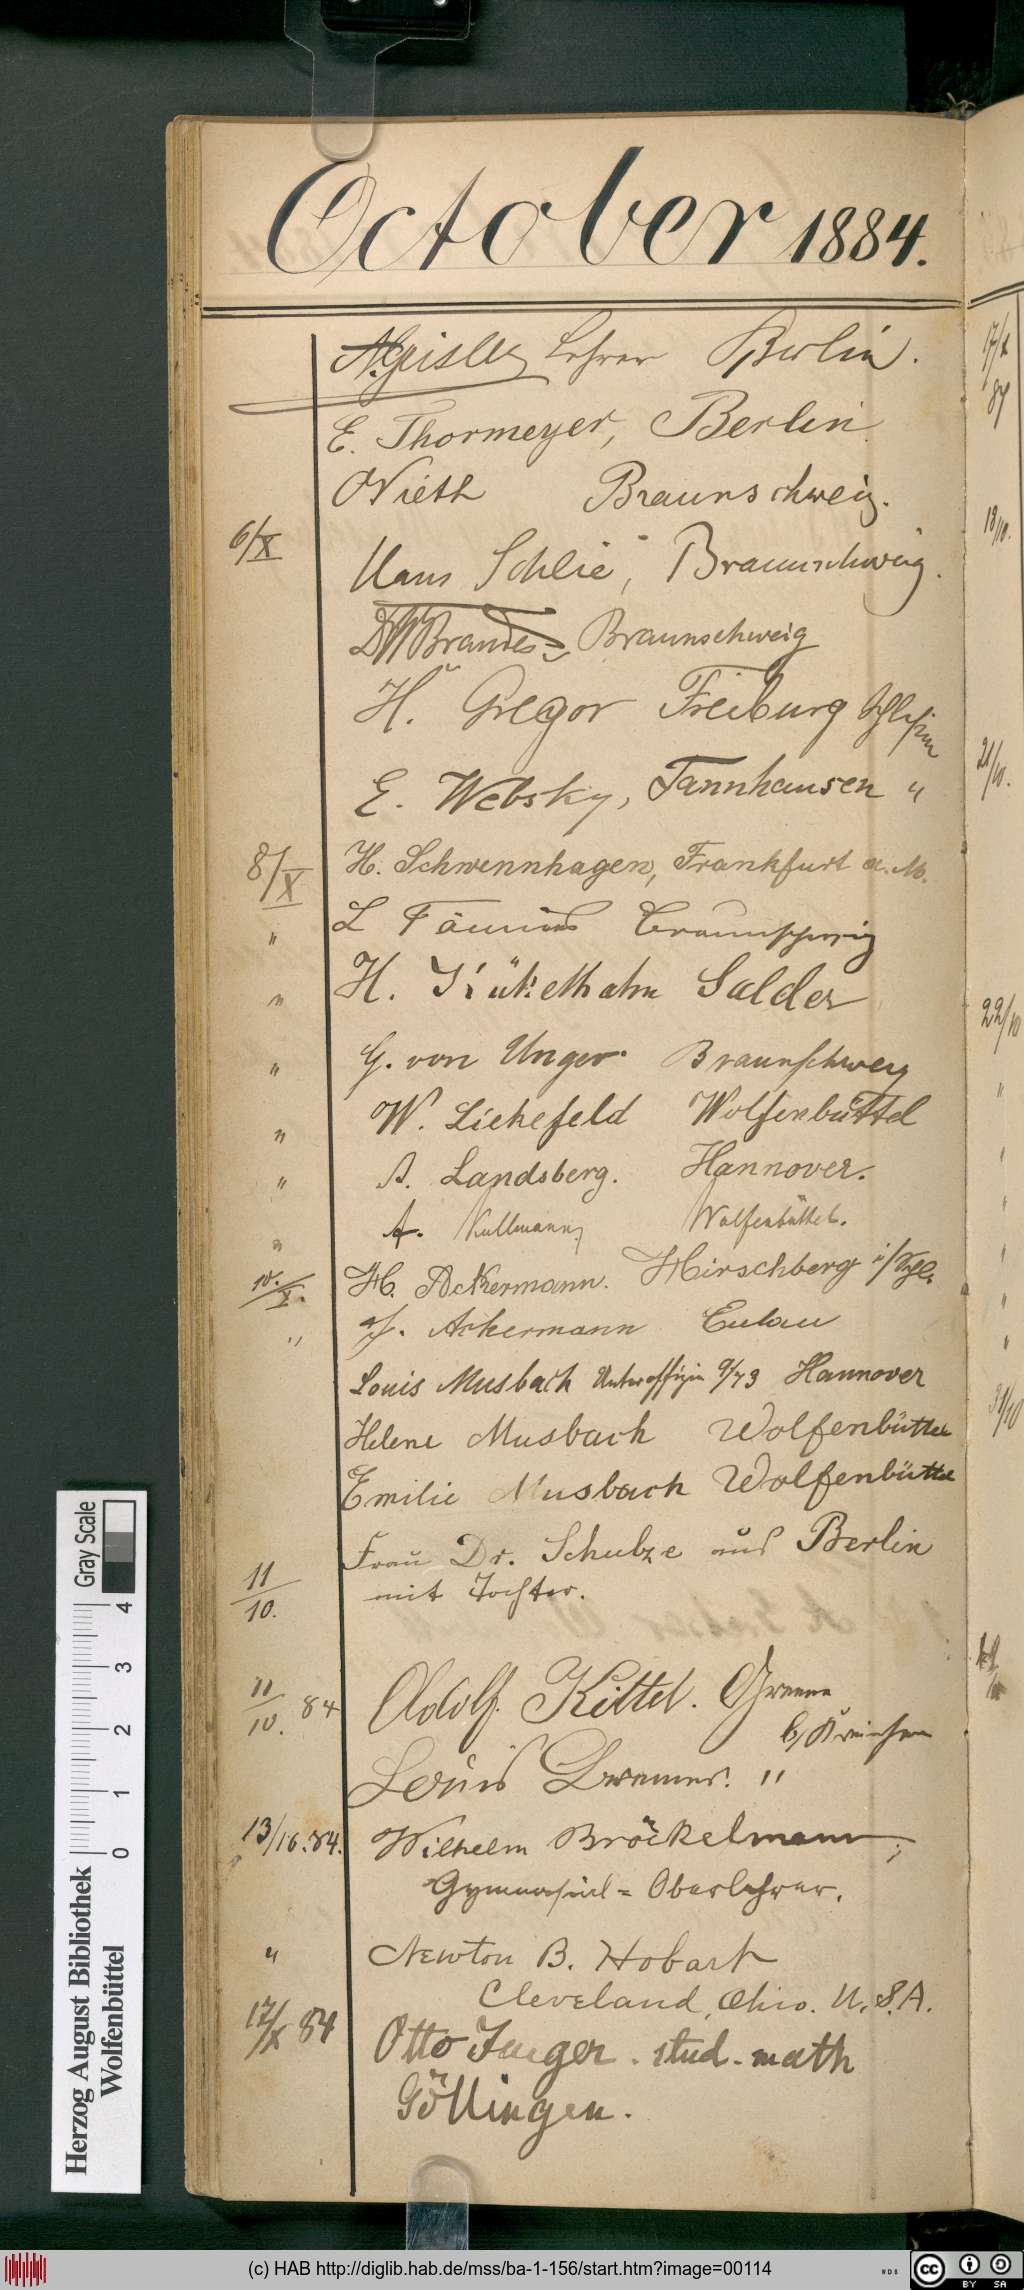 October 1884.
Lehrer Berlin.
E. Thormeyer, Berlin
Vieth Braunschweig.
6/X Hans Schlie, Braunschweig.
Brandes Braunschweig
H. Gregor Freiburg Schlesien
E. Websky, Tannhausen "
8/X H. Schwennhagen, Frankfurt a. M.
" L Braunschweig
" H. Kükelhahn Salder
" G. von Unger Braunschweig
" W. Liekefeld Wolfenbüttel
" A. Landsberg. Hannover.
" A. Kullmann, Wolfenbüttel.
10./X. H. Ackermann. Hirschberg i/Schl.
" F. Ackermann Eulau
Louis Musbach Unteroffizier 9/73 Hannover
Helene Musbach Wolfenbüttel
Emilie Musbach Wolfenbüttel
Frau Dr. Schulze aus Berlin
11/10. mit Tochter.
11/10. 84 Adolf Kittel. Greene
b/Kreiensen
Louis "
13/10.84. Wilhelm Bröckelmann,
Gymnasial-Oberlehrer.
" Newton B. Hobart
Cleveland, Ohio. U. S. A.
17/X 84 Otto Jaeger. stud. math
Göttingen.
17/X
84
18/10.
21/10.
22/10
"
"
"
"
"
"
31/10
Gray Scale
4
3
2
1
0
Herzog August Bibliothek
Wolfenbüttel
(c) HAB http://diglib.hab.de/mss/ba-1-156/start.htm?image=00114
WDB
cc
BY SA